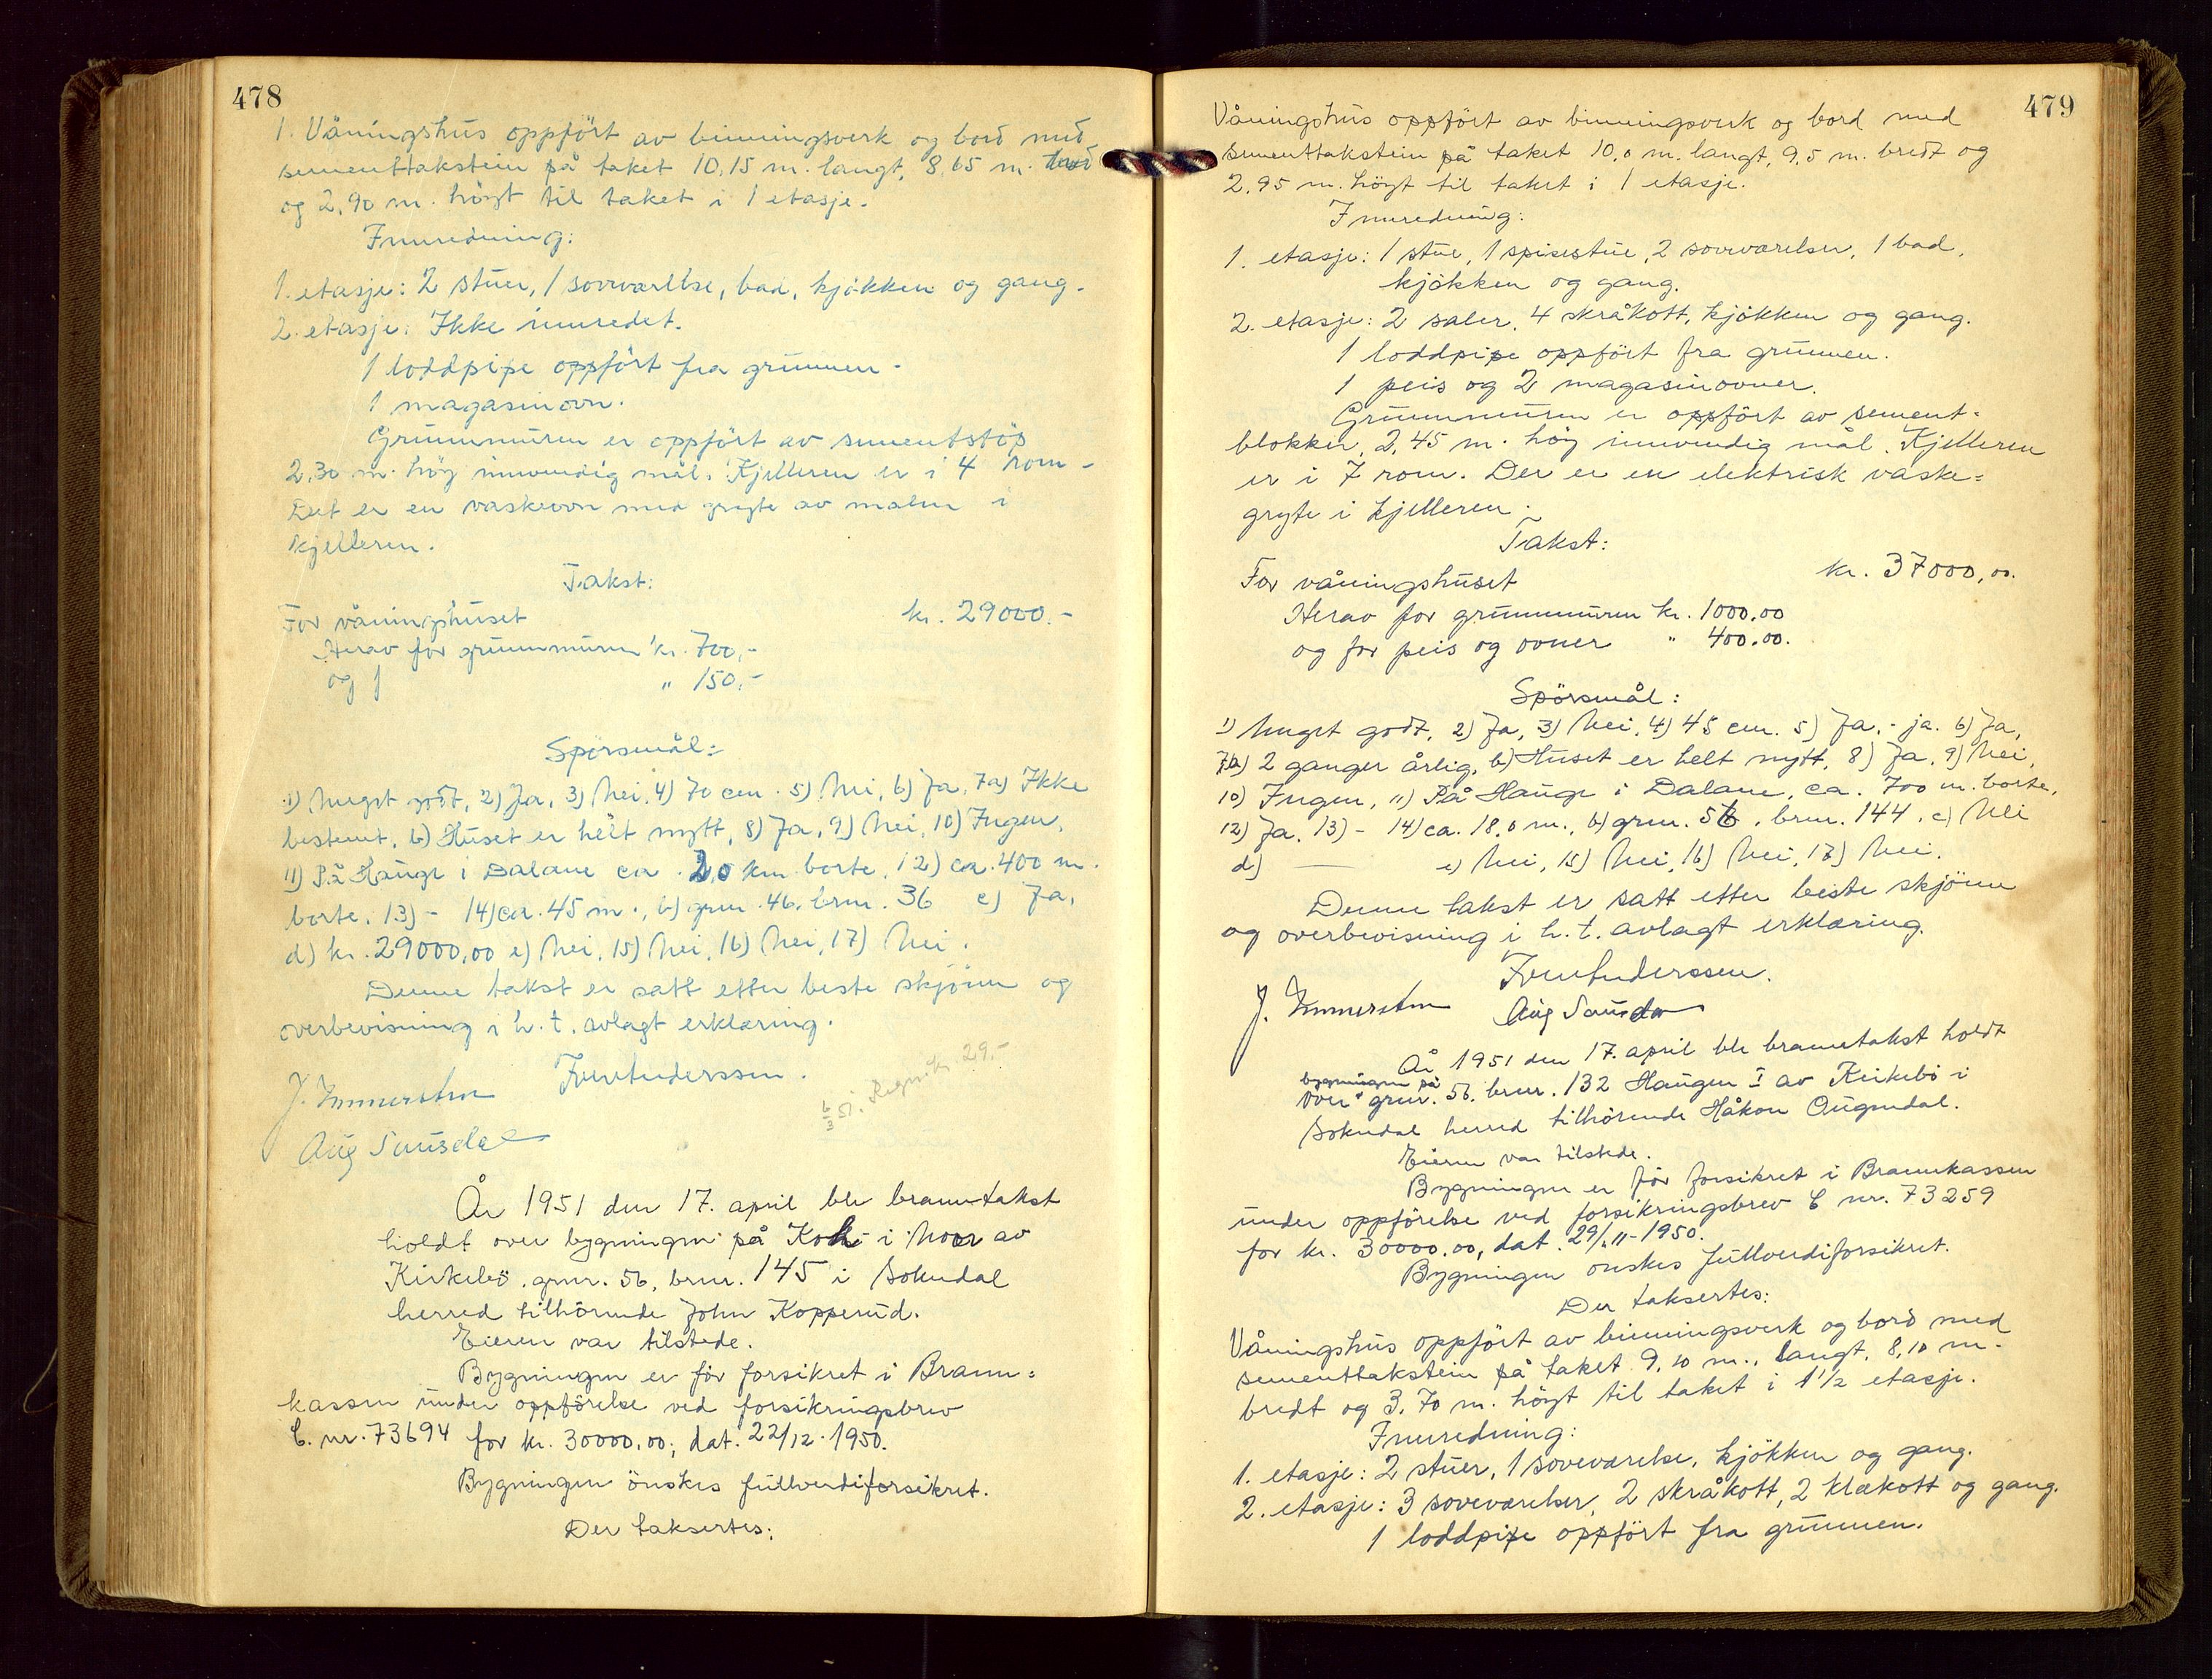 478
1. Våningshus oppført av binningsverk og bord med
sementtakstein på taket 10,15 m. langt, 8,65 m. bred
og 2,90 m. høyt til taket i 1 etasje.
Innredning:
1. etasje: 2 stuer, 1 sovværelse, bad, kjøkken og gang.
2. etasje: Ikke innredet.
1 loddpipe oppført fra grunnen.
1 magasinovn.
Grunnmuren er oppført av sementstøp
2,30 m. høy innvendig mål. Kjelleren er i 4 rom.
Det er en vaskeovn med gryte av malm i
kjelleren.
Takst:
For våningshuset kr. 29000.-
Herav for grunnmuren kr. 700,-
og f " 150,-
Spørsmål:
1) Meget godt, 2) Ja, 3) Nei, 4) 70 cm. 5) Nei, 6) Ja, 7a) Ikke
bestemt, b) Huset er helt nytt, 8) Ja, 9) Nei, 10) Ingen,
11) På Hauge i Dalane ca. 2,0 km borte, 12) ca. 400 m.
borte. 13) - 14) ca. 45 m., b) gnr. 46, brnr. 36 c) Ja,
d) kr. 29000,00 e) Nei, 15) Nei, 16) Nei, 17) Nei.
Denne takst er satt etter beste skjønn og
overbevisning i h. t. avlagt erklæring.
29.-
År 1951 den 17. april ble branntakst
holdt over bygningen på i av
Kirkebö, gnr. 56, brnr. 145 i Sokndal
herred tilhörende John Kopperud.
Eieren var tilstede.
Bygningen er för forsikret i Brann=
kassen under oppförelse ved forsikringsbrev
C. nr. 73694 for kr. 30000,00, dat. 22/12. 1950.
Bygningen önskes fullverdiforsikret.
Der taksertes:
479
Våningshus oppfört av binningsverk og bord med
sementtakstein på taket 10,0 m. langt, 9,5 m. bredt og
2,95 m. höyt til taket i 1 etasje.
Innredning:
1. etasje: 1 stue, 1 spisestue, 2 sovværelser, 1 bad,
kjökken og gang.
2. etasje: 2 saler, 4 skråkott, kjökken og gang.
1 loddpipe oppfört fra grunnen.
1 peis og 2 magasinovner.
Grunnmuren er oppfört av sement=
blokker, 2,45 m. höy innvendig mål. Kjelleren
er i 7 rom. Der er en elektrisk vaske=
gryte i kjelleren.
Takst:
For våningshuset kr. 37000,00.
Herav for grunnmuren kr. 1000.00
og for peis og ovner " 400.00.
Spörsmål:
1) Meget godt, 2) Ja, 3) Nei, 4) 45 cm. 5) Ja, - ja. 6) Ja,
7a) 2 ganger årlig, b) Huset er helt nytt, 8) Ja, 9) Nei,
10) Ingen, 11) På Hauge i Dalane, ca. 700 m. borte,
12) Ja, 13) - 14) ca. 18,0 m., b) gnr. 56, brnr. 144, c) Nei
d) — e) Nei, 15) Nei, 16) Nei, 17) Nei.
Denne takst er satt etter beste skjönn
og overbevisning i h. t. avlagt erklæring.
År 1951 den 17. april ble branntakst holdt
bygningen på
over gnr. 56. brnr. 132 Haugen I av Kirkebö i
Sokndal herred tilhörende Håkon Augendal.
Eieren var tilstede.
Bygningen er för forsikret i Brannkassen
under oppförelse ved forsikringsbrev C nr. 73259
for kr. 30000.00, dat. 29/11-1950.
Bygningen önskes fullverdiforsikret.
Der taksertes:
Våningshus oppfört av binningsverk og bord med
sementtakstein på taket 9,10 m., langt, 8,10 m.
bredt og 3,70 m. höyt til taket i 1 1/2 etasje.
Innredning:
1. etasje: 2 stuer, 1 soveværelse, kjökken og gang.
2. etasje: 3 soveværelser, 2 skråkott, 2 klekott og gang.
1 loddpipe oppfört fra grunnen.